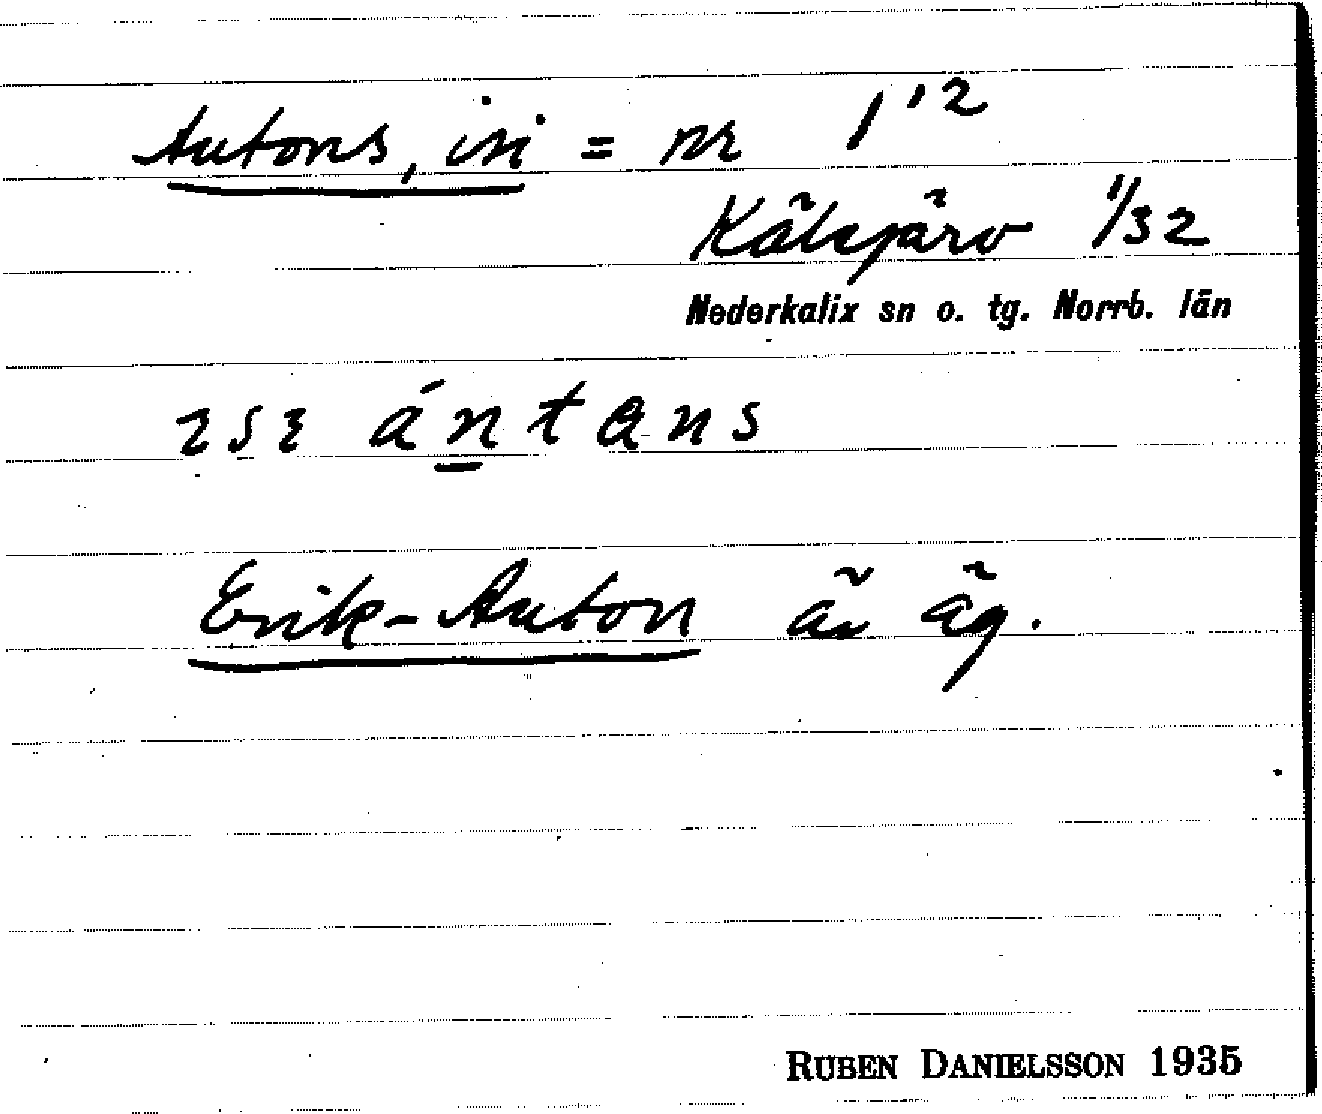 Antons, isi = nr 1¹²
Kälsjärv 1/32
Nederkalix sn o. tg. Norrb. län
ısı ántans
Erik-Anton är äg.
RUBEN DANIELSSON 1935